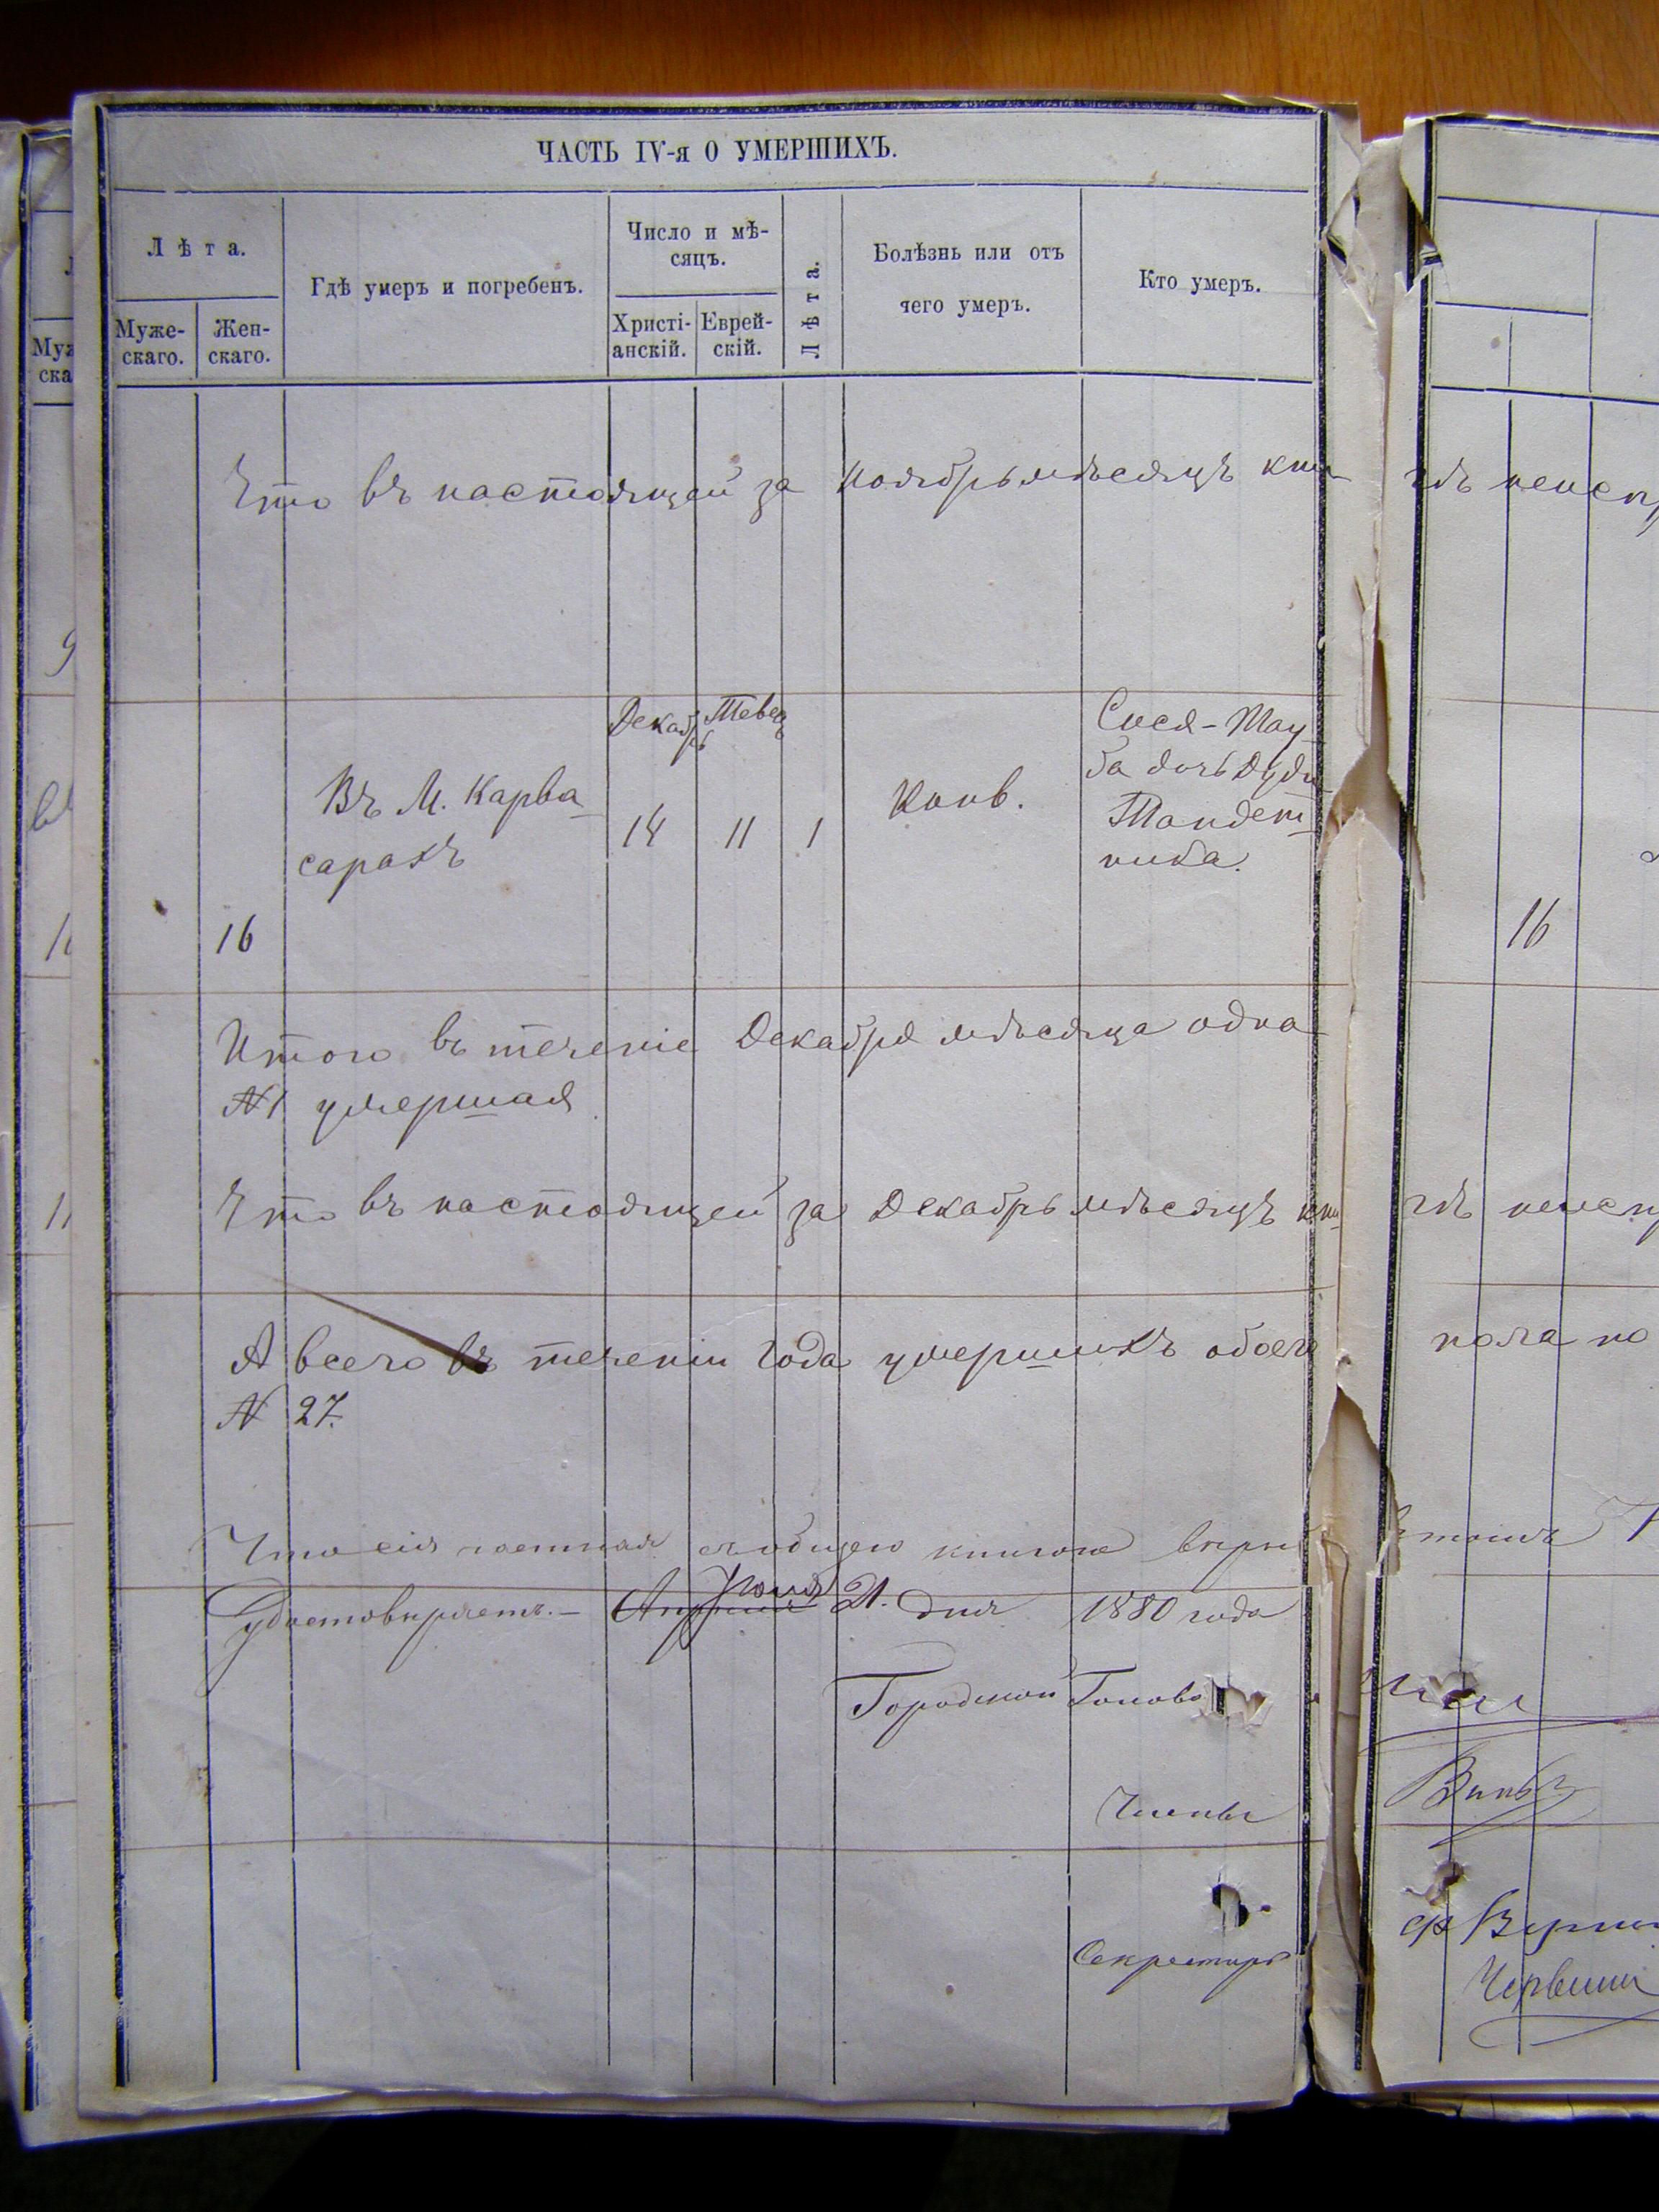 ЧАСТЬ IV-я О УМЕРШИХЪ.
Лѣта.
Муже-
скаго.
Жен-
скаго.
Гдѣ умеръ и погребенъ.
Число и мѣ-
сяцъ.
Христі-
анскій.
Еврей-
скій.
Лѣта.
Болѣзнь или отъ
чего умеръ.
Кто умеръ.
Что въ настоящей за Ноябрь мѣсяцъ кни-
16
Въ М. Карва-
сарахъ
Декабрь
14
Тевец
11
1
Конв.
Сися-Тау-
ба дочь Дуди
Тандет-
ника.
Итого въ теченіе Декабря мѣсяца одна
№1 умершая
Что въ настоящей за Декабрь мѣсяцъ кни-
А всего въ теченіи года умершихъ обоего
№ 27.
Что сія
удостовѣряетъ.- Іюня 21. дня 1880 года
Городской Голова
Члены
Секретарь
гѣ
16
гѣ
пола по